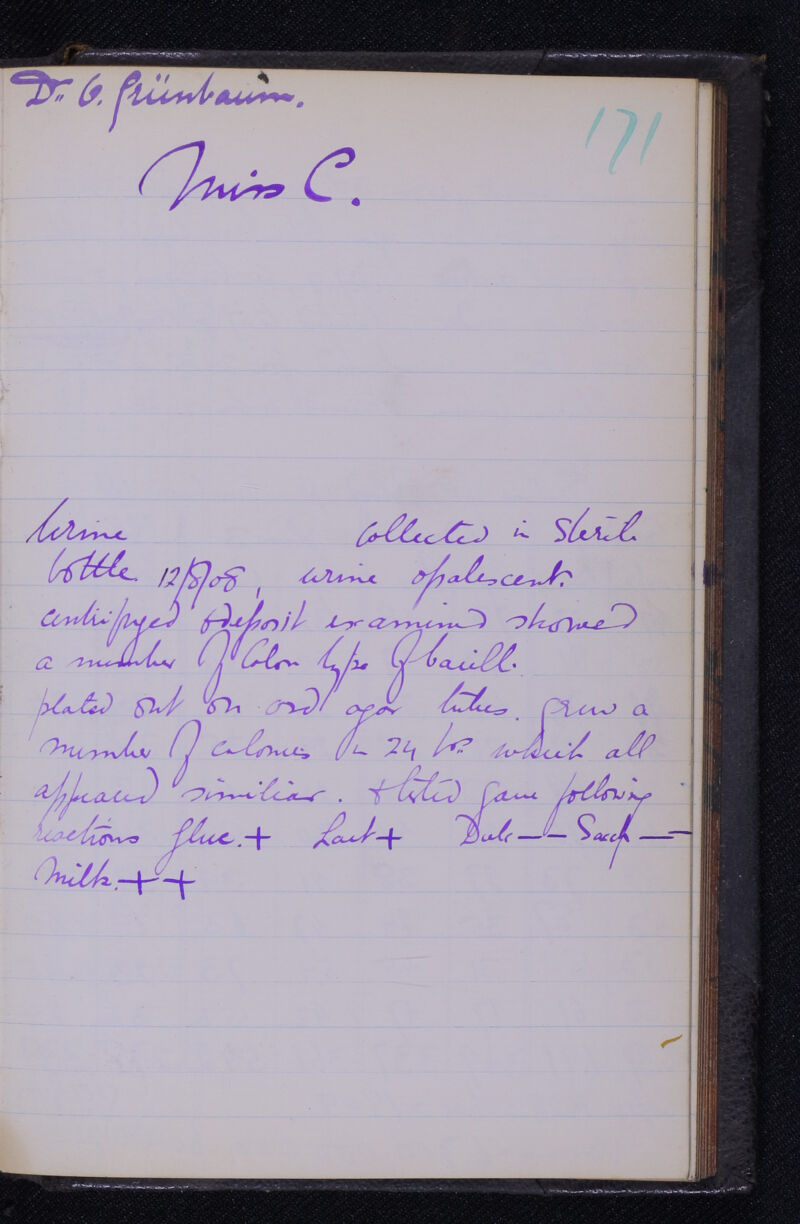 Dr. O. Grünbaum.
171
Miss C.
Urine collected in sterile
bottle. 12/8/08, urine opalescent.
centrifuged & deposit examined showed
a number of Colon type of bacilli.
plated out on ord agar tubes. grew a
number of colonies in 24 hrs which all
appeared similiar. & tested gave following
reactions Gluc. + Lact + Dulc — — Sacch — —
Milk. + +